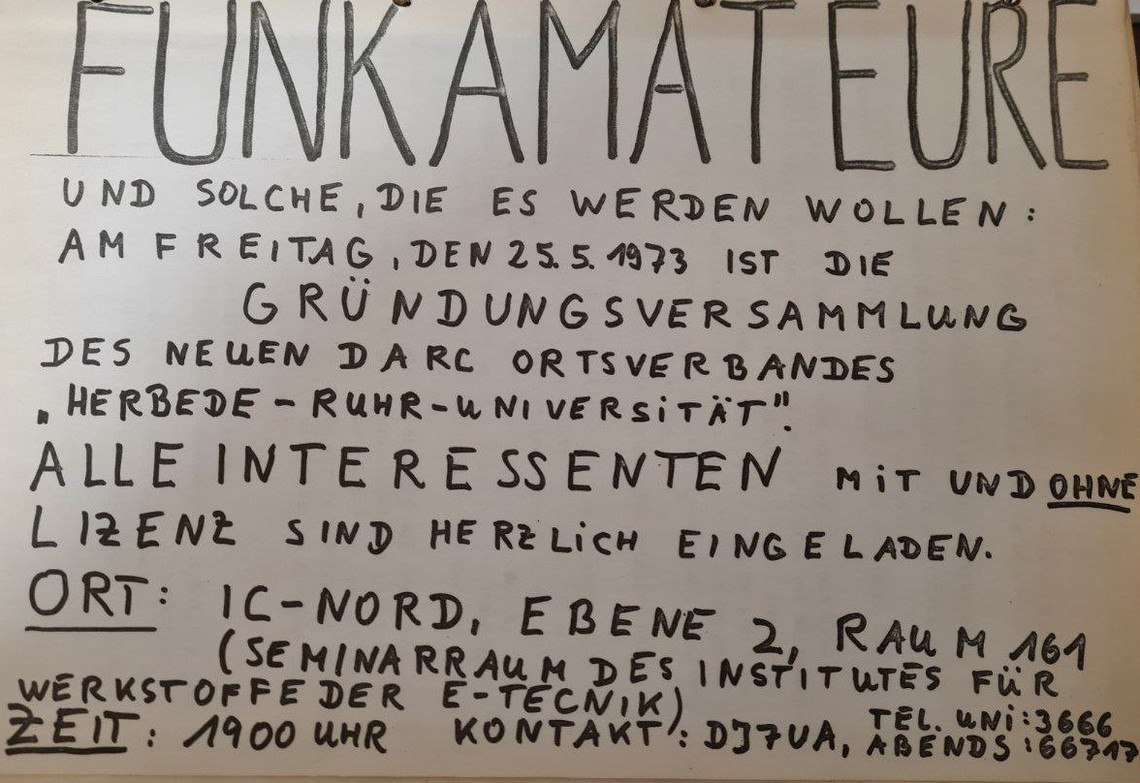 FUNKAMATEURE
UND SOLCHE, DIE ES WERDEN WOLLEN:
AM FREITAG, DEN 25.5.1973 IST DIE
GRÜNDUNGSVERSAMMLUNG
DES NEUEN DARC ORTSVERBANDES
„HERBEDE-RUHR-UNIVERSITÄT".
ALLE INTERESSENTEN MIT UND OHNE
LIZENZ SIND HERZLICH EINGELADEN.
ORT: IC-NORD, EBENE 2, RAUM 161
(SEMINARRAUM DES INSTITUTES FÜR
WERKSTOFFE DER E-TECNIK)
ZEIT: 1900 UHR KONTAKT: DJ7UA, TEL. UNI: 3666
ABENDS: 66717